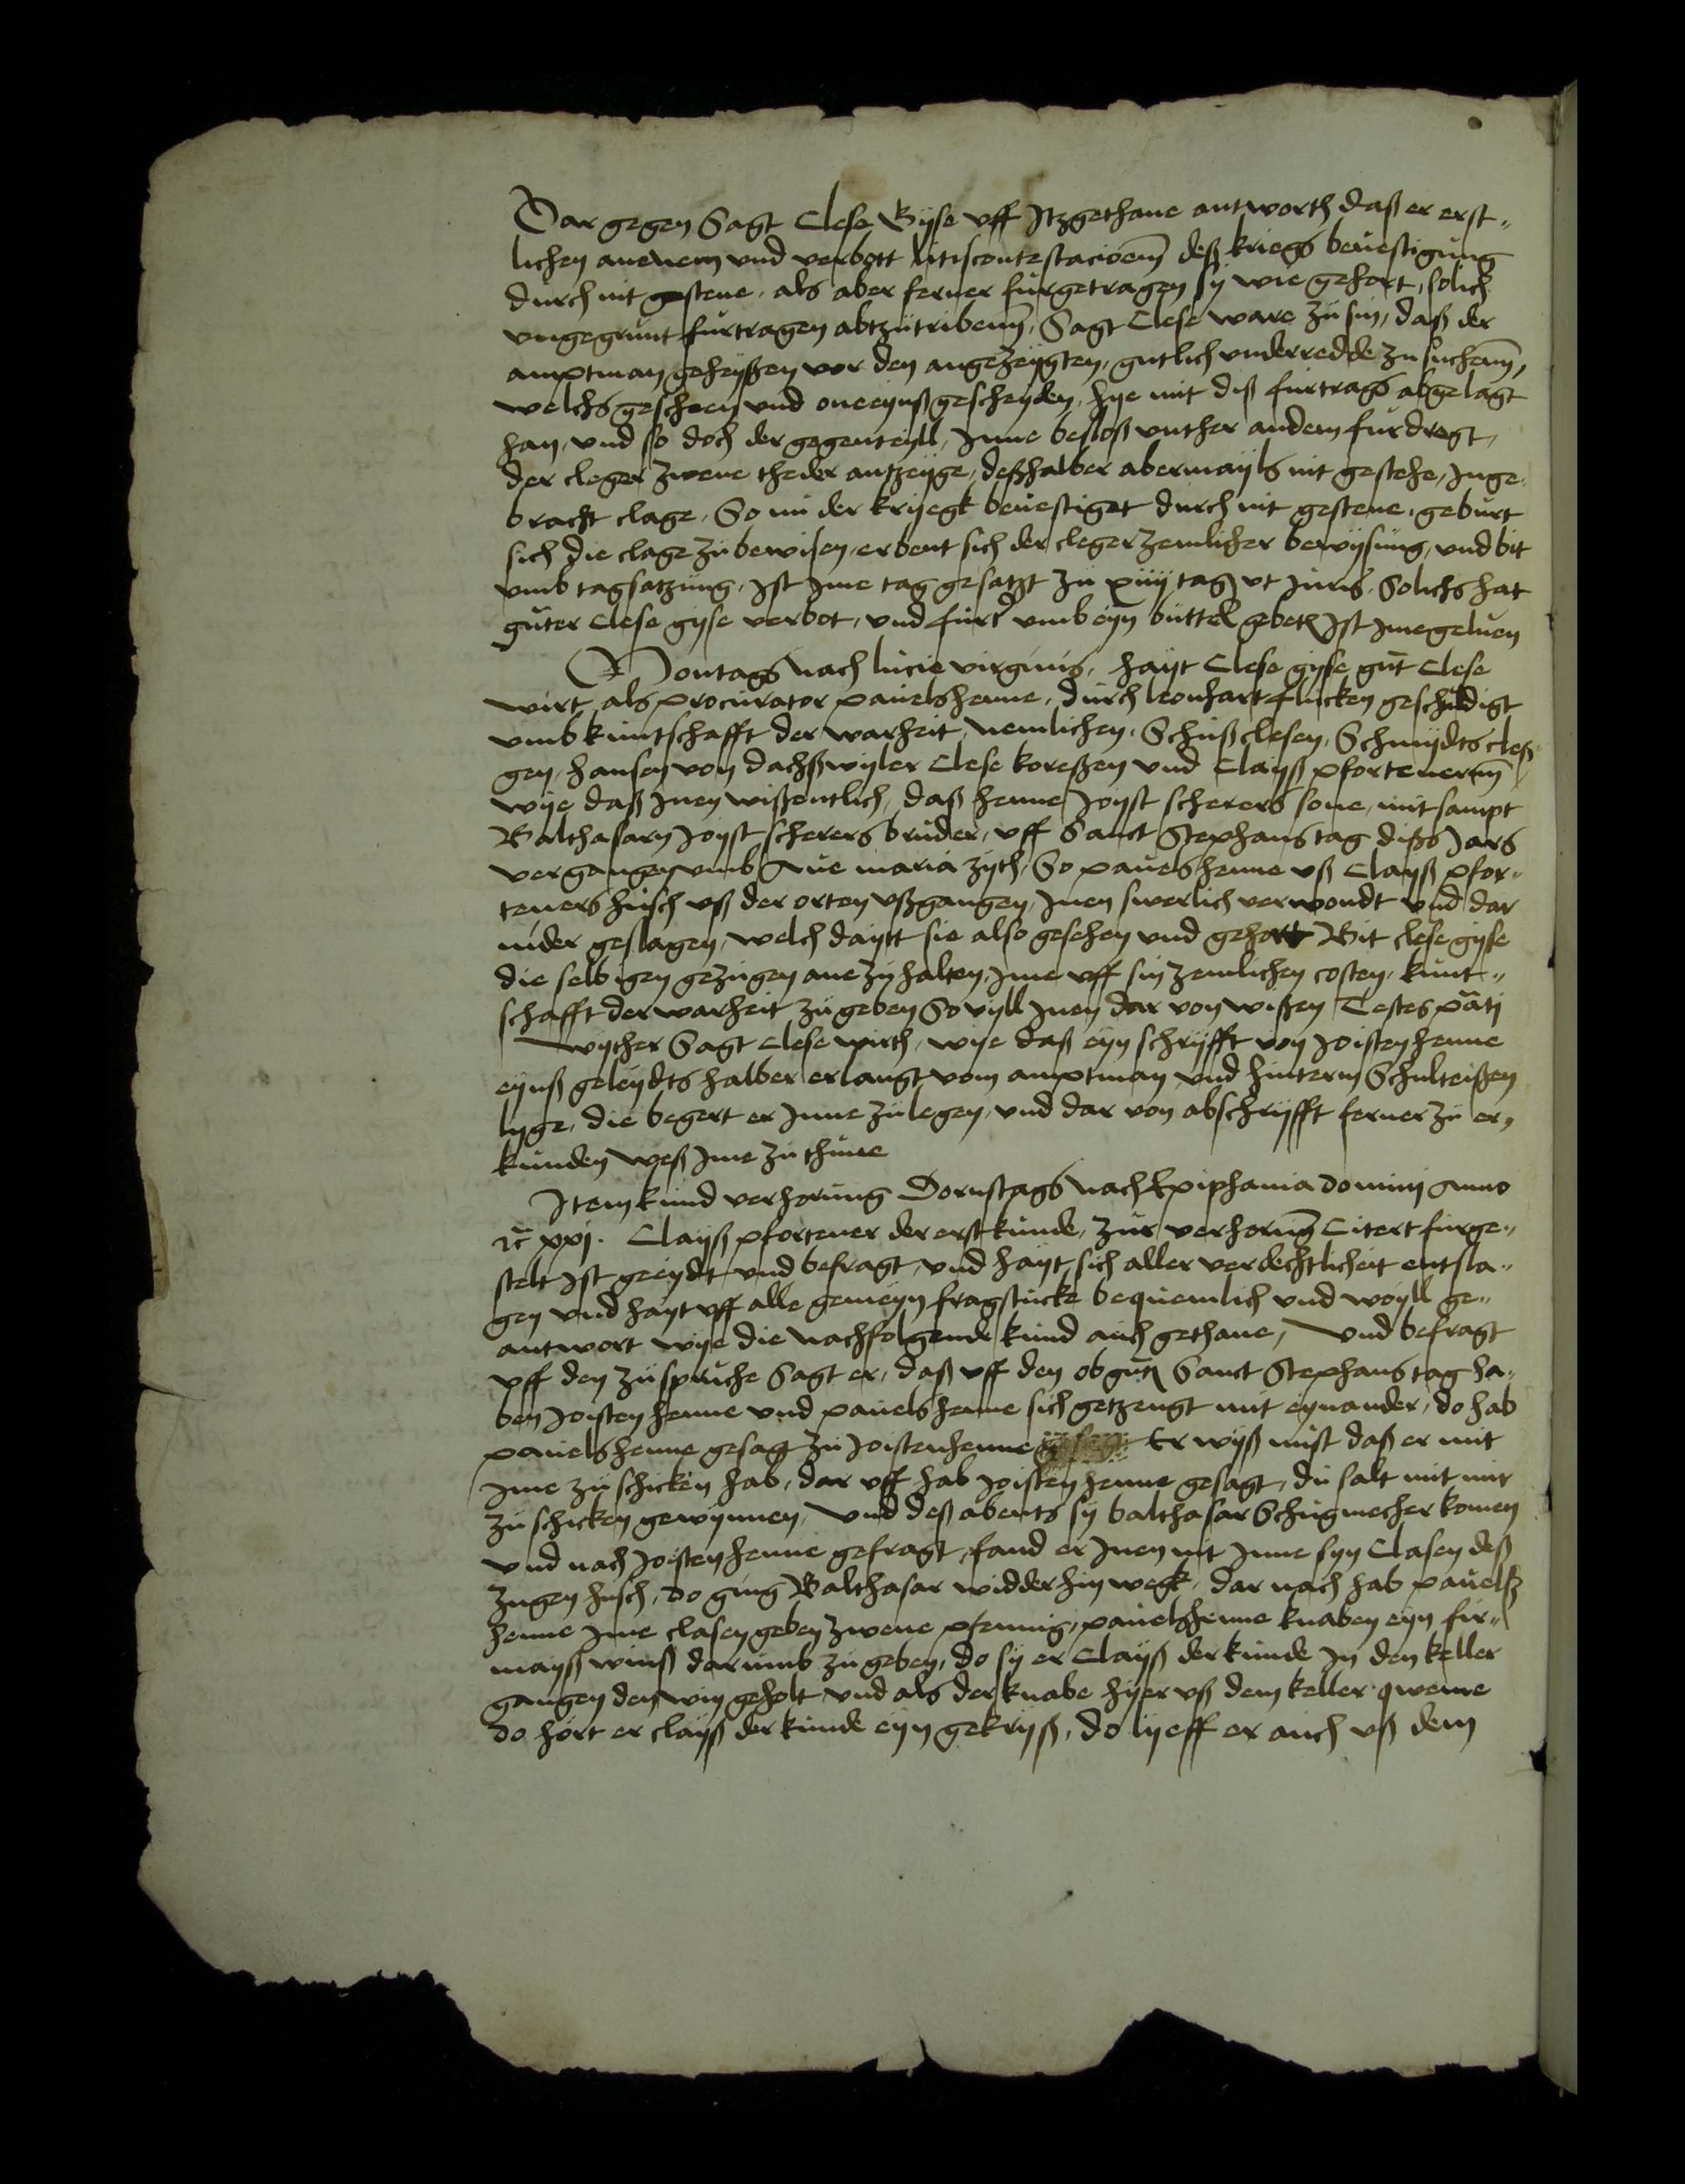 Dar gegen Sagt Clese Gyse uff Itzgethane antworth, daß er erst„
lichen anenem und verbott litiscontestacionem deß kriegs bevestigung
durch nit gestene, als aber ferner furgetragen sy wie gehort, solich
ungegrunt furtragen abtzutribenn, Sagt Clese ware zu sin, daß der
amptman geheyßen vor den angezeygten, gutlich underredde zu suchenn,
welchs gescheen und one eynß gescheyden, hye mit diß furtrags abgelagt
han, und so doch der gegenteyll, Inne besloß unther andern furdregt,
der cleger zwene theder antzeyge, deßhalber abermayls nit gestehe, Inge„
bracht clage, So nu der kryegk bevestiget durch nit gestene, geburt
sich die clage zu bewisen, erbeut sich der cleger zemlicher bewysung, und bit
umb tagsatzung, Ist Ime tag gesatzt zu xiiij tag ut Juris, Solichs hat
guter Clese gyse verbot, und furt umb eyn buttel gebeten Ist Ime geluen
Montags nach lucie virginis, hayt Clese gyse gut Clese
wirt, als procurator pauels henne, durch leonhart flucken geschuldigt
umb kuntschafft der warheit, nemlichen, Schuß clesen, Schmydts cleß„
gen, hansen von dachßwyler Clese koreßen und Clayß pfortenernn
wye daß Inen wißentlich, daß henne Joyst scherers sone, mitsampt
Balthasarn Joyst scherers bruder, uff Sanct Stephans tag dißs Jars
vergangen umb Ave maria zyth, So pauels henne uß Clayß pfor„
teners husch uß der orten ußgangen, Inen swerlich verwondt und dar
nider geslagen, welch daytt sie also gesehen und gehort Bit clese gyse
die selbigen gezugen ane zu halten, Ime uff sin zemlichen costen, kunt„
schafft der warheit zu geben So vyll Inen dar von wißen Testes parti
wyther Sagt Clese wirth, wye daß eyn schryfft von Joisten henne
eynß geleydts halber erlangt vom amptman und hinterm Schulteißen
lyge, die begert er Inne zu legen, und dar von abschryfft ferner zu er„
kunden weß Ime zu thune
Item kund verhorung Dornstags nach Epiphania domini Anno
rc xxj. Clayß pfortener der erst kunde, zur verhorung Citert furge„
stelt Ist geeydt und befragt, und hayt sich aller verdechtlicheit entsla„
gen und hayt uff alle gemeyn fragstucke bequemlich und woyll ge„
antwort wye die nachfolgende kund auch gethane, Und befragt
uff den zuspruche Sagt er, daß uff den obgnten Sanct Stephans tag ha„
ben Joisten henne und pauels henne sich getzengt mit eynander, do hab
pauels henne gesagt zu Joistenhenne Er wyß nust daß er mit
Ime zu schicken hab, dar uff hab Joisten henne gesagt, du salt mit mir
zu schicken gewynnen, Und deß abents sy balthasar Schugmecher komen
und nach Joisten henne gefragt, fand er Inen nit Inne syn Clasen deß
zugen husch, do ging Balthasar widder hin wegk, dar nach hab pauelß
henne Ime clasen geben zwene pfennig, pauelßhenne knaben eyn fir„
mayß winß darumb zu geben, do sy er Clayß der kunde In den keller
gangen den win geholt und als der knabe hyer uß dem keller qweme
do hort er clayß der kunde eyn gekryß, do lyeff er auch uß dem